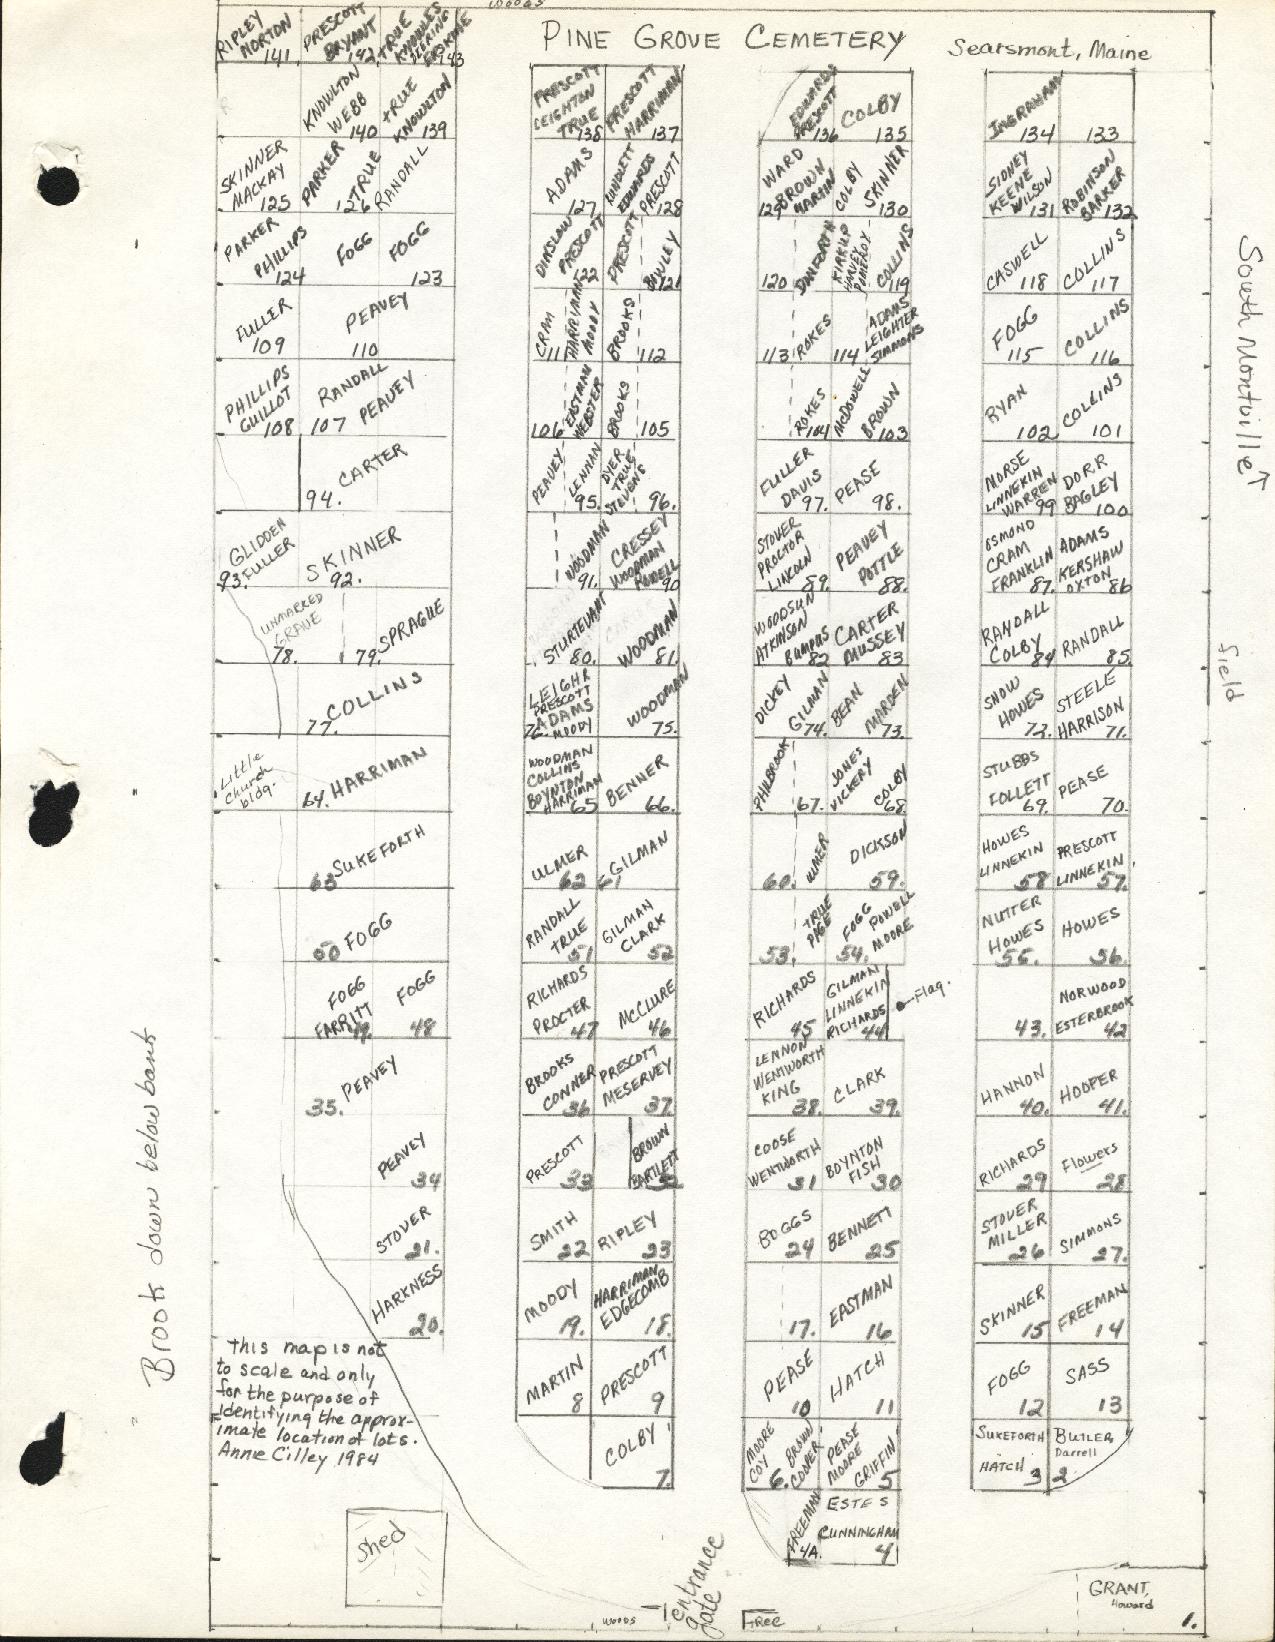 Woods
PINE GROVE CEMETERY
Searsmont, Maine
RIPLEY
NORTON
141.
PRESCOTT
BRYANT
142.
TRUE
KNOWLES
DEERING
ERSKINE
143
KNOWLTON
WEBB
140
TRUE
KNOWLTON
139
PRESCOTT
LEIGHTON
TRUE
138
PRESCOTT
HARRIMAN
137
EDWARDS
PRESCOTT
136
COLBY
135
INGRAHAM
134
133
SKINNER
MACKAY
125
PARKER
126
TRUE
RANDALL
ADAMS
127
RUNDLETT
EDWARDS
PRESCOTT
128
WARD
BROWN
MARTIN
129
COLBY
SKINNER
130
SIDNEY
KEENE
WILSON
131
ROBINSON
BARKER
132
PARKER
PHILLIPS
124
FOGG
FOGG
123
DINSLOW
PRESCOTT
122
PRESCOTT
BEWLEY
121
120
DANFORTH
KIRKUP
HARVEY
POMEROY
COLLINS
119
CASWELL
118
COLLINS
117
FULLER
109
PEAVEY
110
CRAM
111
HARRIMAN
MOODY
BROOKS
112
113
ROKES
114
ADAMS
LEIGHTER
SIMMONS
FOGG
115
COLLINS
116
PHILLIPS
GUILLOT
108
107
RANDALL
PEAVEY
106
EASTMAN
WEBSTER
BROOKS
105
ROKES
104
McDOWELL
BROWN
103
RYAN
102
COLLINS
101
94.
CARTER
PEAVEY
LENNAN
95.
DYER
TRUE
STEVENS
96.
FULLER
DAVIS
97.
PEASE
98.
MORSE
LINNEKIN
WARREN
99
DORR
BAGLEY
100
GLIDDEN
FULLER
93.
SKINNER
92.
WOODMAN
91.
CRESSEY
WOODMAN
POWELL
90
STOVER
PROCTOR
LINCOLN
89.
PEAVEY
POTTLE
88.
OSMOND
CRAM
FRANKLIN
87.
ADAMS
KERSHAW
OXTON
86
UNMARKED
GRAVE
78.
79.
SPRAGUE
STURTEVANT
80.
WOODMAN
81.
WOODSUM
ATKINSON
BUMPUS
82
CARTER
MUSSEY
83
RANDALL
COLBY
84
RANDALL
85.
77.
COLLINS
LEIGHR
PRESCOTT
ADAMS
MOODY
76
WOODMAN
75.
DICKEY
GILMAN
74.
BEAN
MARDEN
73.
SNOW
HOWES
72.
STEELE
HARRISON
71.
Little
Church
bldg.
64.
HARRIMAN
WOODMAN
COLLINS
BOYNTON
HARRIMAN
65
BENNER
66.
PHILBROOK
67.
JONES
VICKERY
COLBY
68.
STUBBS
FOLLETT
69.
PEASE
70.
63
SUKEFORTH
ULMER
62
61
GILMAN
60.
ULMER
DICKSON
59.
HOWES
LINNEKIN
58
PRESCOTT
LINNEKIN
57.
50
FOGG
RANDALL
TRUE
51
GILMAN
CLARK
52
53.
TRUE
PAGE
54.
FOGG
POWELL
MOORE
NUTTER
HOWES
55.
HOWES
56.
FOGG
FARRITT
49.
FOGG
48
RICHARDS
PROCTER
47
McCLURE
46
RICHARDS
45
GILMAN
LINNEKIN
RICHARDS
44
Flag.
43.
NORWOOD
ESTERBROOK
42
35.
PEAVEY
BROOKS
CONNER
36
PRESCOTT
MESERVEY
37.
LENNON
WENTWORTH
KING
38.
CLARK
39.
HANNON
40.
HOOPER
41.
PEAVEY
34
PRESCOTT
33
BROWN
BARTLETT
32
COOSE
WENTWORTH
31
BOYNTON
FISH
30
RICHARDS
29
Flowers
28
STOVER
21.
SMITH
22
RIPLEY
23
BOGGS
24
BENNETT
25
STOVER
MILLER
26
SIMMONS
27.
HARKNESS
20.
MOODY
19.
HARRIMAN
EDGECOMB
18.
17.
EASTMAN
16
SKINNER
15
FREEMAN
14
MARTIN
8
PRESCOTT
9
PEASE
10
HATCH
11
FOGG
12
SASS
13
COLBY
7.
MOORE
COY
6.
BROWN
COOPER
PEASE
MOORE
GRIFFIN
5
SUKEFORTH
HATCH
3
BUTLER
Darrell
2
FREEMAN
4A.
ESTES
CUNNINGHAM
4
This map is not
to scale and only
for the purpose of
identifying the approx-
imate location of lots.
Annie Cilley 1984
Shed
woods
Entrance
gate
Free
GRANT,
Howard
1.
Brook down below bank
South Montville
field